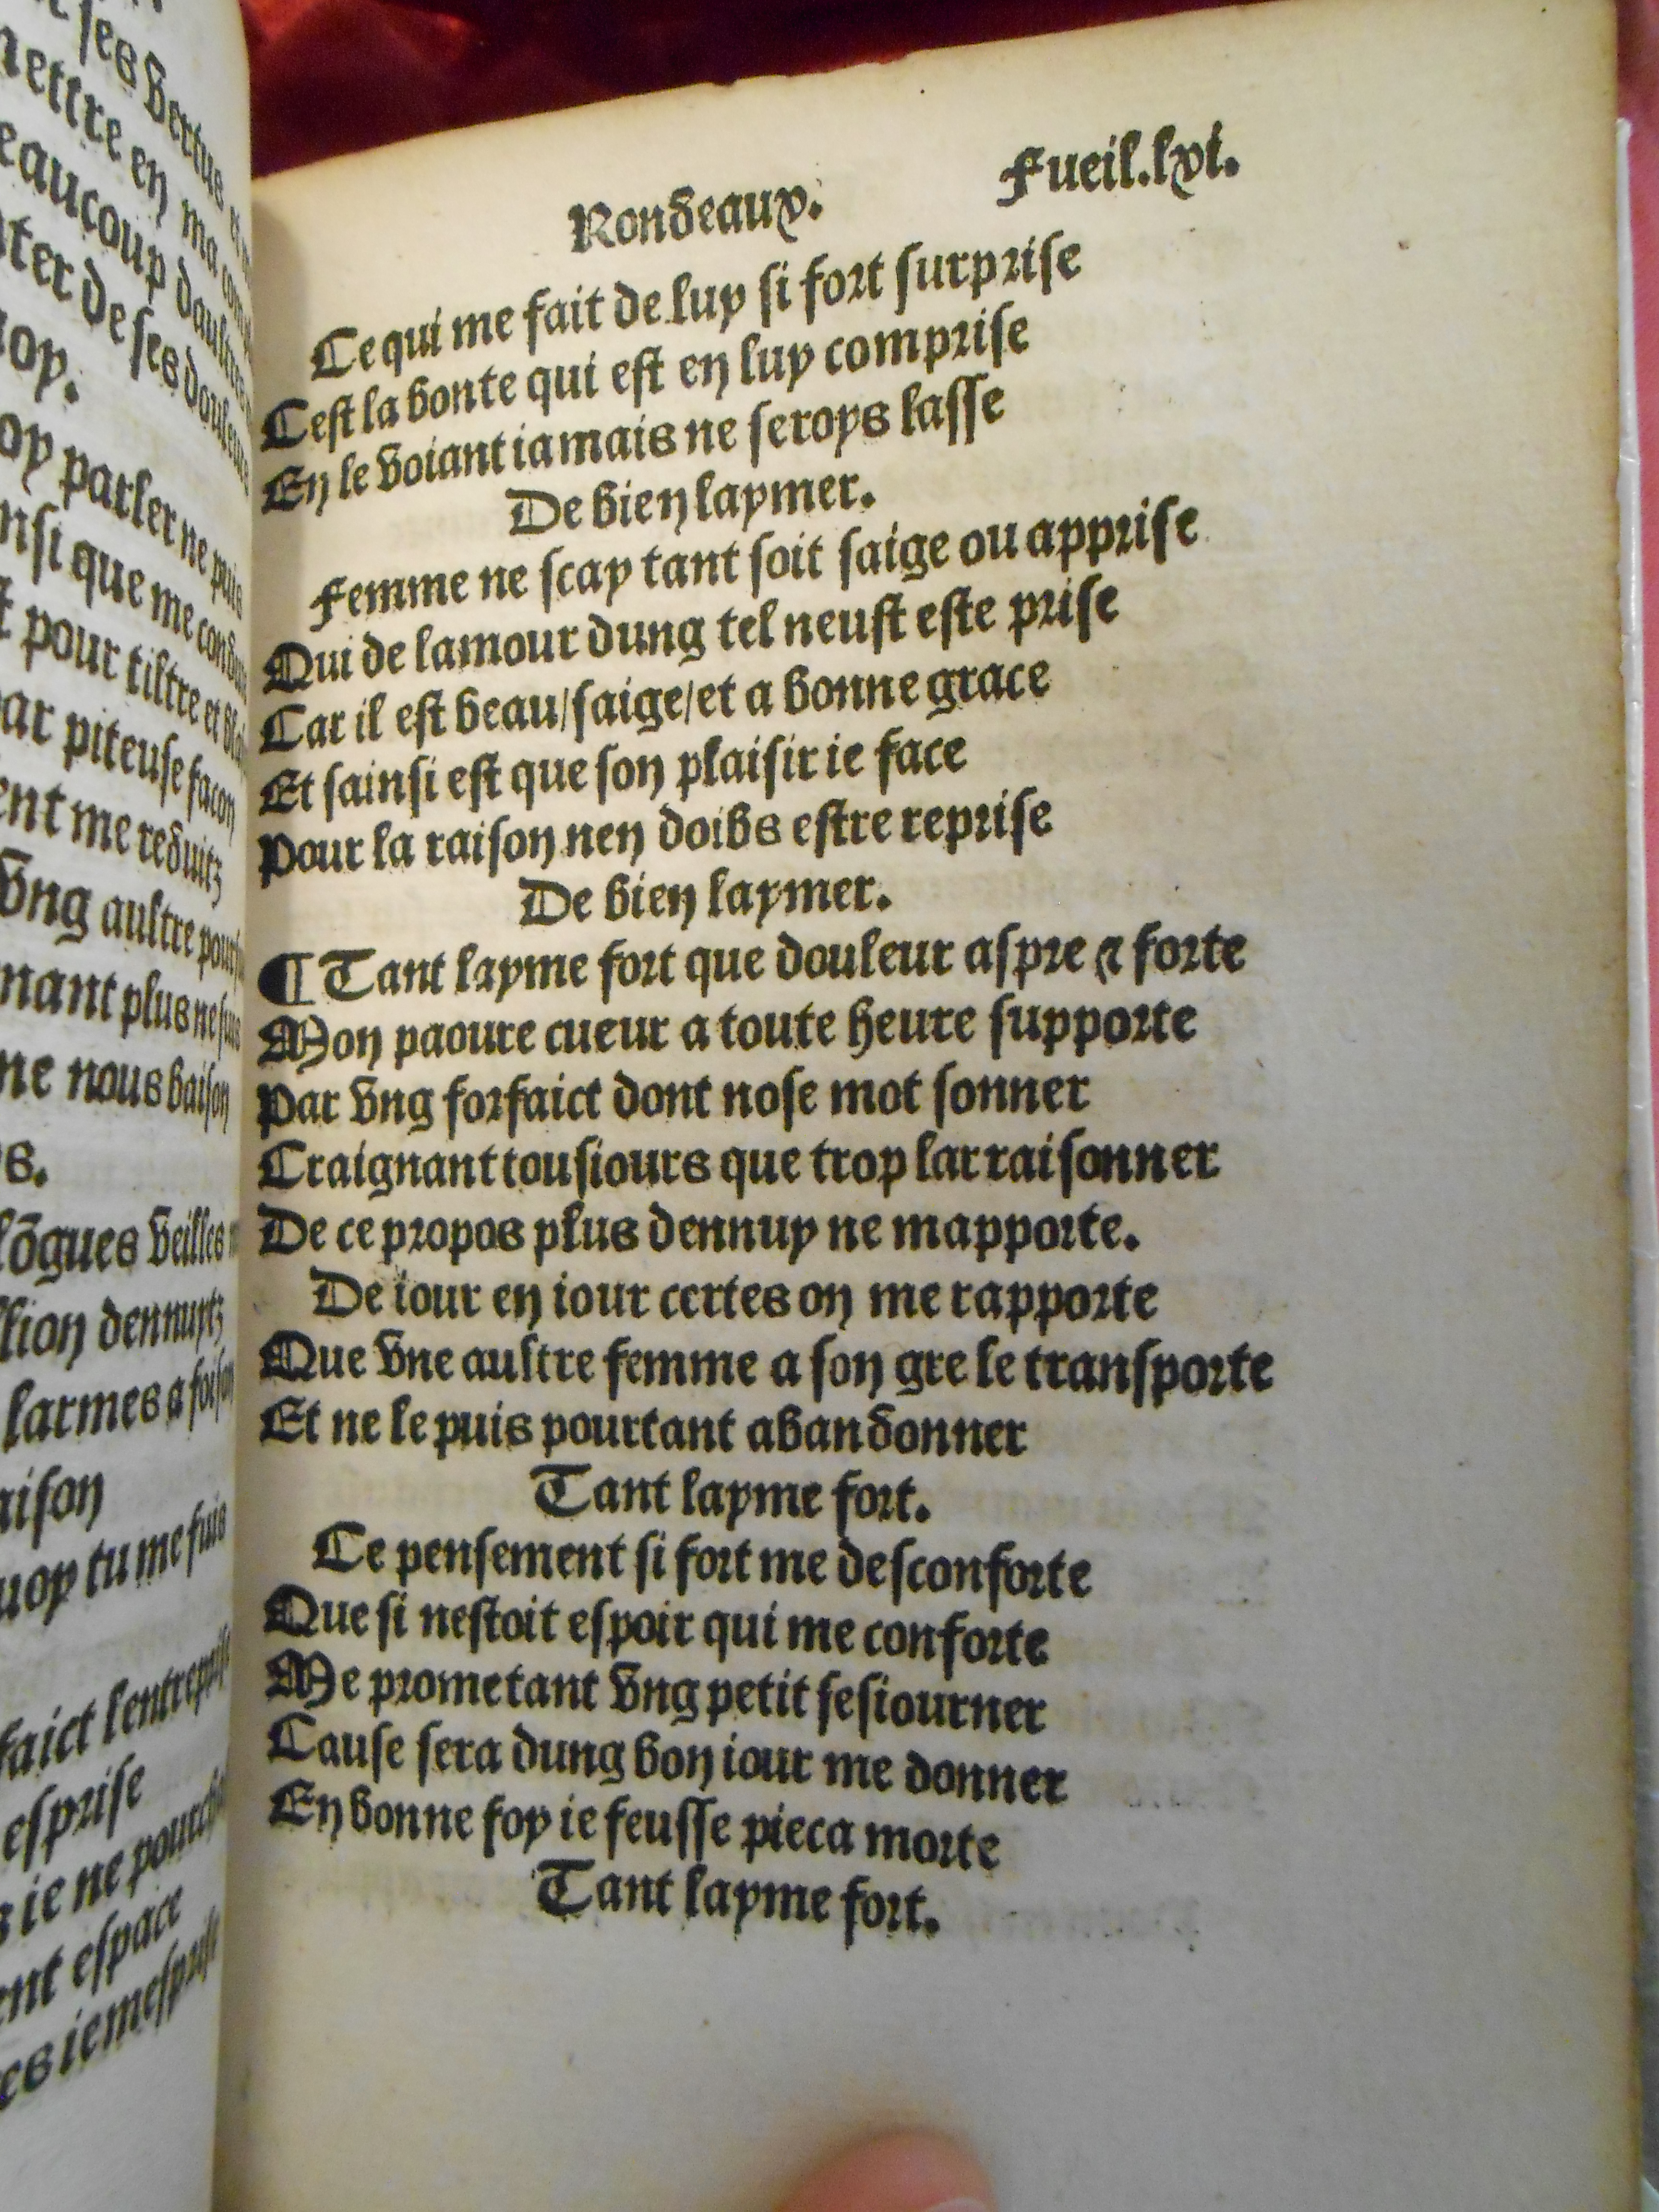 ses vertus
mettre en ma
eaucoup daultres
ter de ses douleurs
oy.
oy parler ne puis
nsi que me
t pour tiltre et
ar piteuse facon
ent me reduitz
vng aultre
nant plus ne suis
ne nous baison
s.
lõgues veilles
llion dennuytz
larmes a foison
aison
uoy tu me fuis
faict lentreprise
esprise
ie ne
ent espace
es ie mesprise
Rondeaux. Fueil.lxi.
Ce qui me fait de luy si fort surprise
Cest la bonte qui est en luy comprise
En le voiant iamais ne seroys lasse
De bien laymer.
Femme ne scay tant soit saige ou apprise
Qui de lamour dung tel neust este prise
Car il est beau/saige/et a bonne grace
Et sainsi est que son plaisir ie face
Pour la raison nen doibs estre reprise
De bien laymer.
¶ Tant layme fort que douleur aspre & forte
Mon paoure cueur a toute heure supporte
Par vng forfaict dont nose mot sonner
Craignant tousiours que trop larraisonner
De ce propos plus dennuy ne mapporte.
De iour en iour certes on me rapporte
Que vne aultre femme a son gre le transporte
Et ne le puis pourtant abandonner
Tant layme fort.
Ce pensement si fort me desconforte
Que si nestoit espoir qui me conforte
Me prometant vng petit sesiourner
Cause sera dung bon iour me donner
En bonne foy ie feusse pieca morte
Tant layme fort.